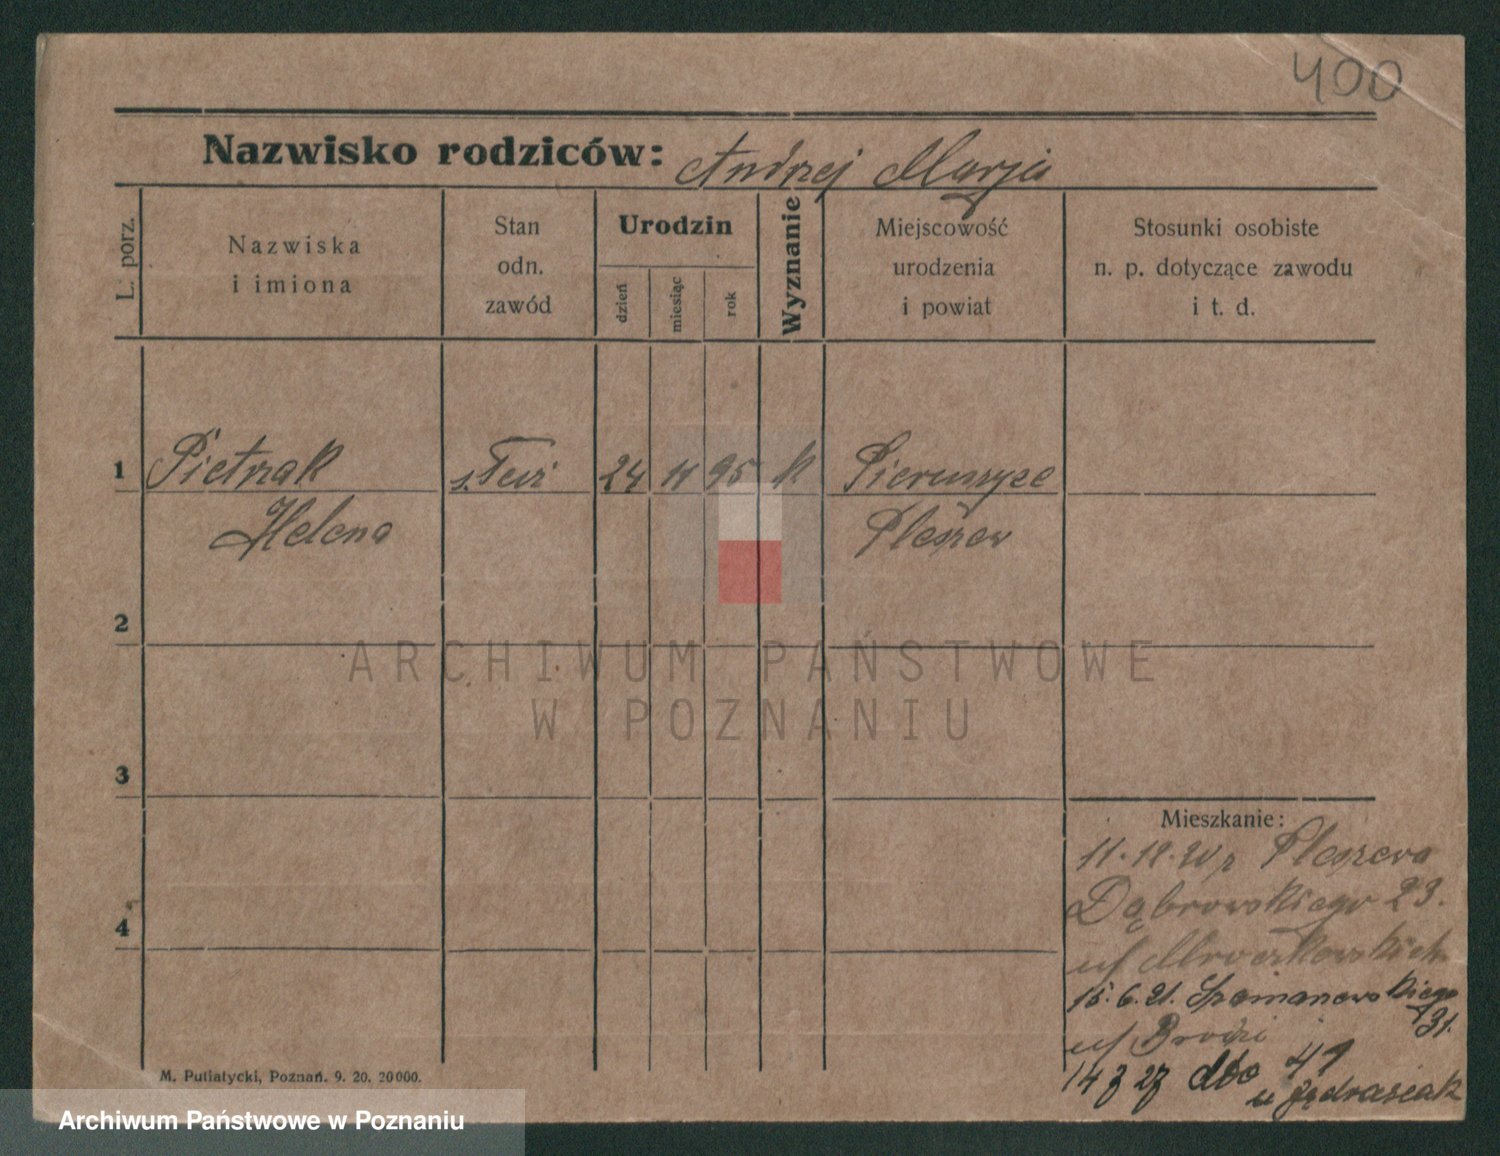 400
Nazwisko rodziców: Andrzej Marja
L. porz.
Nazwiska
i imiona
Stan
odn.
zawód
Urodzin
dzień
miesiąc
rok
Wyznanie
Miejscowość
urodzenia
i powiat
Stosunki osobiste
n. p. dotyczące zawodu
i t. d.
1 Pietrzak 24 11 95 k Pieruszyce
Helena Pleszew
2
3
4
Mieszkanie:
11.12.20 z Pleszewa
Dąbrowskiego 23.
u/ Mroczkowskich
15.6.21. Szamarzewskiego
31.
u/ Brodzi
14 27 dto 41
u Jędrasiak
M. Putiatycki, Poznań. 9. 20. 20000.
ARCHIWUM PAŃSTWOWE
W POZNANIU
Archiwum Państwowe w Poznaniu